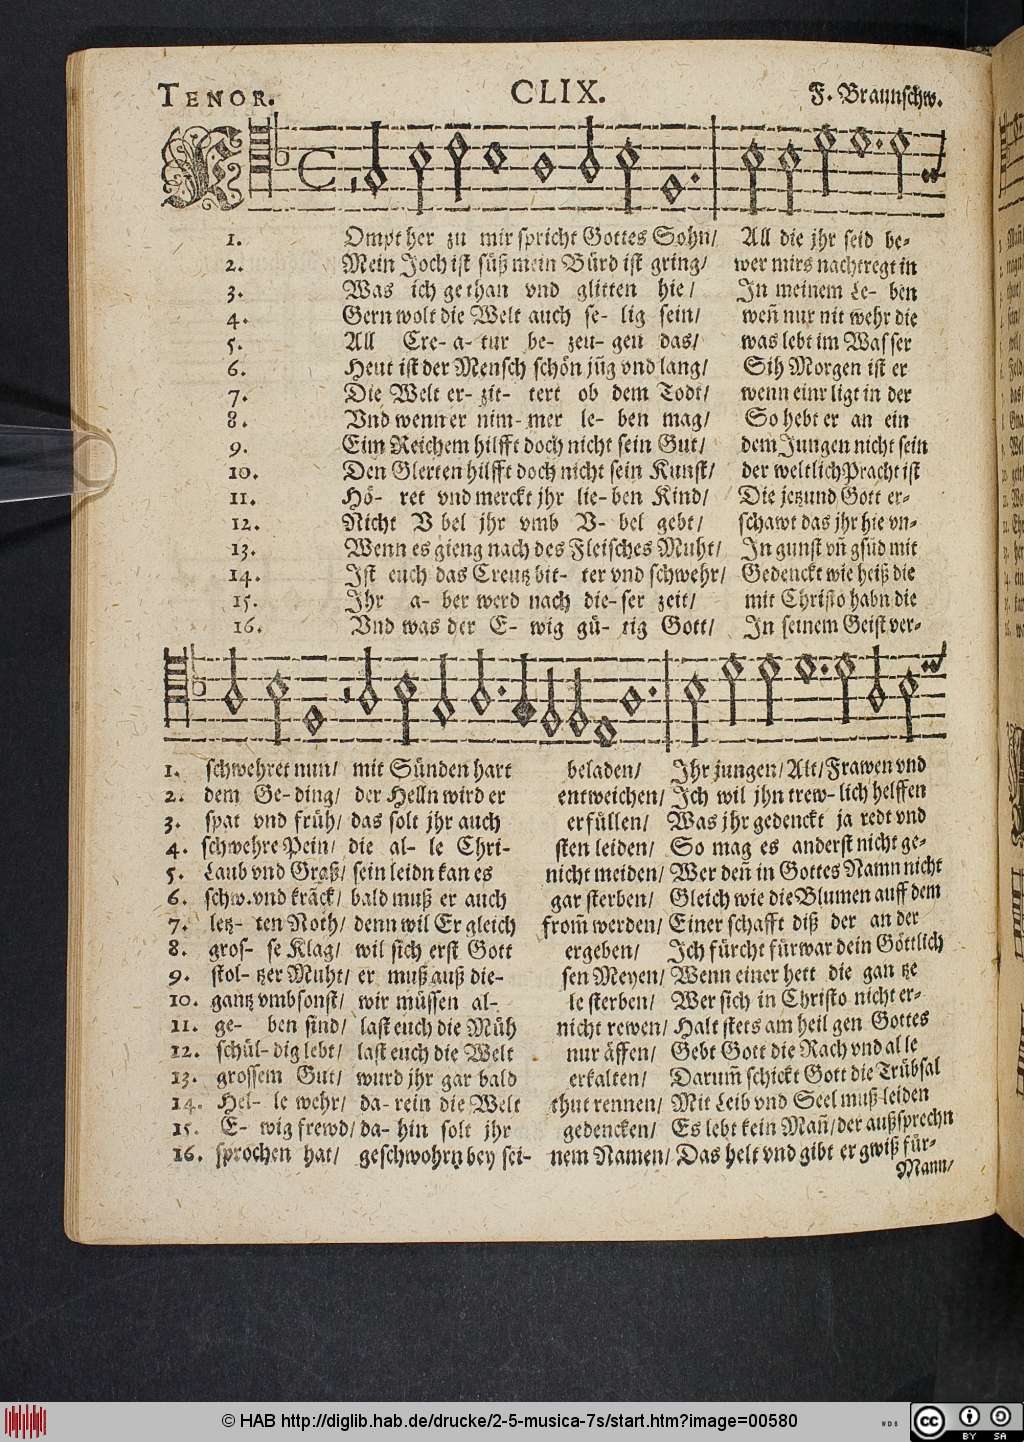 TENOR. CLIX. F. Braunschw.
K
1. Ompt her zu mir spricht Gottes Sohn/ All die jhr seid be-
2. Mein Joch ist süß mein Bürd ist gring/ wer mirs nachtregt in
3. Was ich gethan vnd glitten hie/ In meinem Le- ben
4. Gern wolt die Welt auch se- lig sein/ weñ nur nit wehr die
5. All Cre- a- tur be- zeu- gen das/ was lebt im Wasser
6. Heut ist der Mensch schön jũg vnd lang/ Sih Morgen ist er
7. Die Welt er- zit- tert ob dem Todt/ wenn einr ligt in der
8. Vnd wenn er nim- mer le- ben mag/ So hebt er an ein
9. Eim Reichem hilfft doch nicht sein Gut/ dem Jungen nicht sein
10. Den Glerten hilfft doch nicht sein Kunst/ der weltlich Pracht ist
11. Hö- ret vnd merckt jhr lie- ben Kind/ Die jetzund Gott er-
12. Nicht V bel jhr vmb V- bel gebt/ schawt das jhr hie vn-
13. Wenn es gieng nach des Fleisches Muht/ In gunst vñ gsũd mit
14. Ist euch das Creutz bit- ter vnd schwehr/ Gedenckt wie heiß die
15. Ihr a- ber werd nach die- ser zeit/ mit Christo habn die
16. Vnd was der E- wig gü- tig Gott/ In seinem Geist ver-
1. schwehret nun/ mit Sünden hart beladen/ Ihr jungen/ Alt/ Frawen vnd
2. dem Ge- ding/ der Helln wird er entweichen/ Ich wil jhn trew- lich helffen
3. spat vnd früh/ das solt jhr auch erfüllen/ Was jhr gedenckt ja redt vnd
4. schwehre Pein/ die al- le Chri- sten leiden/ So mag es anderst nicht ge-
5. Laub vnd Graß/ sein leidn kan es nicht meiden/ Wer deñ in Gottes Namn nicht
6. schw. vnd krãck/ bald muß er auch gar sterben/ Gleich wie die Blumen auff dem
7. letz- ten Noth/ denn wil Er gleich from̃ werden/ Einer schafft diß der an der
8. gros- se Klag/ wil sich erst Gott ergeben/ Ich fürcht fürwar dein Göttlich
9. stol- tzer Muht/ er muß auß die- sen Meyen/ Wenn einer hett die gan tze
10. gantz vmbsonst/ wir müssen al- le sterben/ Wer sich in Christo nicht er-
11. ge- ben sind/ last euch die Müh nicht rewen/ Halt stets am heil gen Gottes
12. schül- dig lebt/ last euch die Welt nur äffen/ Gebt Gott die Rach vnd al le
13. grossem Gut/ wurd jhr gar bald erkalten/ Darum̃ schickt Gott die Trübsal
14. Hel- le wehr/ da- rein die Welt thut rennen/ Mit Leib vnd Seel muß leiden
15. E- wig frewd/ da- hin solt jhr gedencken/ Es lebt kein Mañ/ der außsprechn
16. sprochen hat/ geschwohrn bey sei- nem Namen/ Das helt vnd gibt er gwiß für-
Mann/
© HAB http://diglib.hab.de/drucke/2-5-musica-7s/start.htm?image=00580
CC BY SA